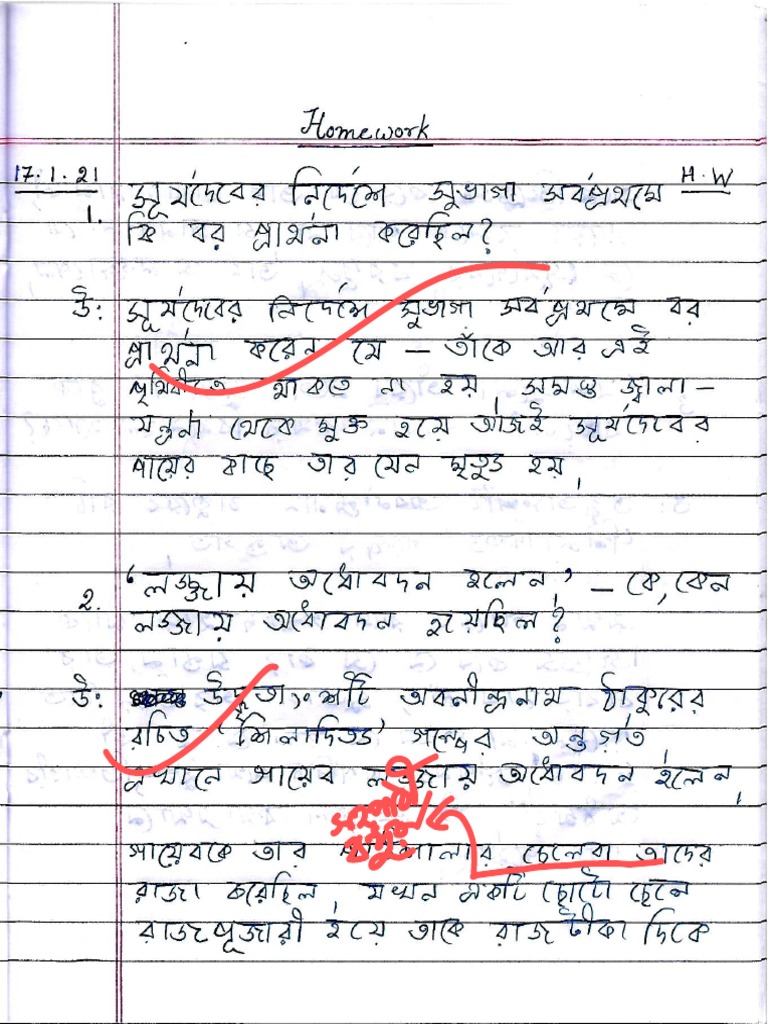 Homework
17.1.21 H.W
1. সূর্যদেবের নির্দেশে সুভাগা সর্বপ্রথমে
কি বর প্রার্থনা করেছিল?
উ: সূর্যদেবের নির্দেশে সুভাগা সর্বপ্রথমে বর
প্রার্থনা করেন যে – তাঁকে আর এই
পৃথিবীতে থাকতে না হয়, সমস্ত জ্বালা –
যন্ত্রনা থেকে মুক্ত হয়ে আজই সূর্যদেবের
পায়ের কাছে তার যেন মৃত্যু হয়,
2. ‘লজ্জায় অধোবদন হলেন,’ – কে, কেন
লজ্জায় অধোবদন হয়েছিল?
উ: উদ্ধৃতাংশটি অবনীন্দ্রনাথ ঠাকুরের
রচিত ‘শিলাদিত্য’ গল্পের অন্তর্গত,
এখানে গায়েব লজ্জায় অধোবদন হলেন,
গায়েবকে তার পাঠশালার ছেলেরা তাদের
রাজা করেছিল, যখন একটি ছোটো ছেলে
রাজপূজারী হয়ে তাকে রাজটীকা দিকে